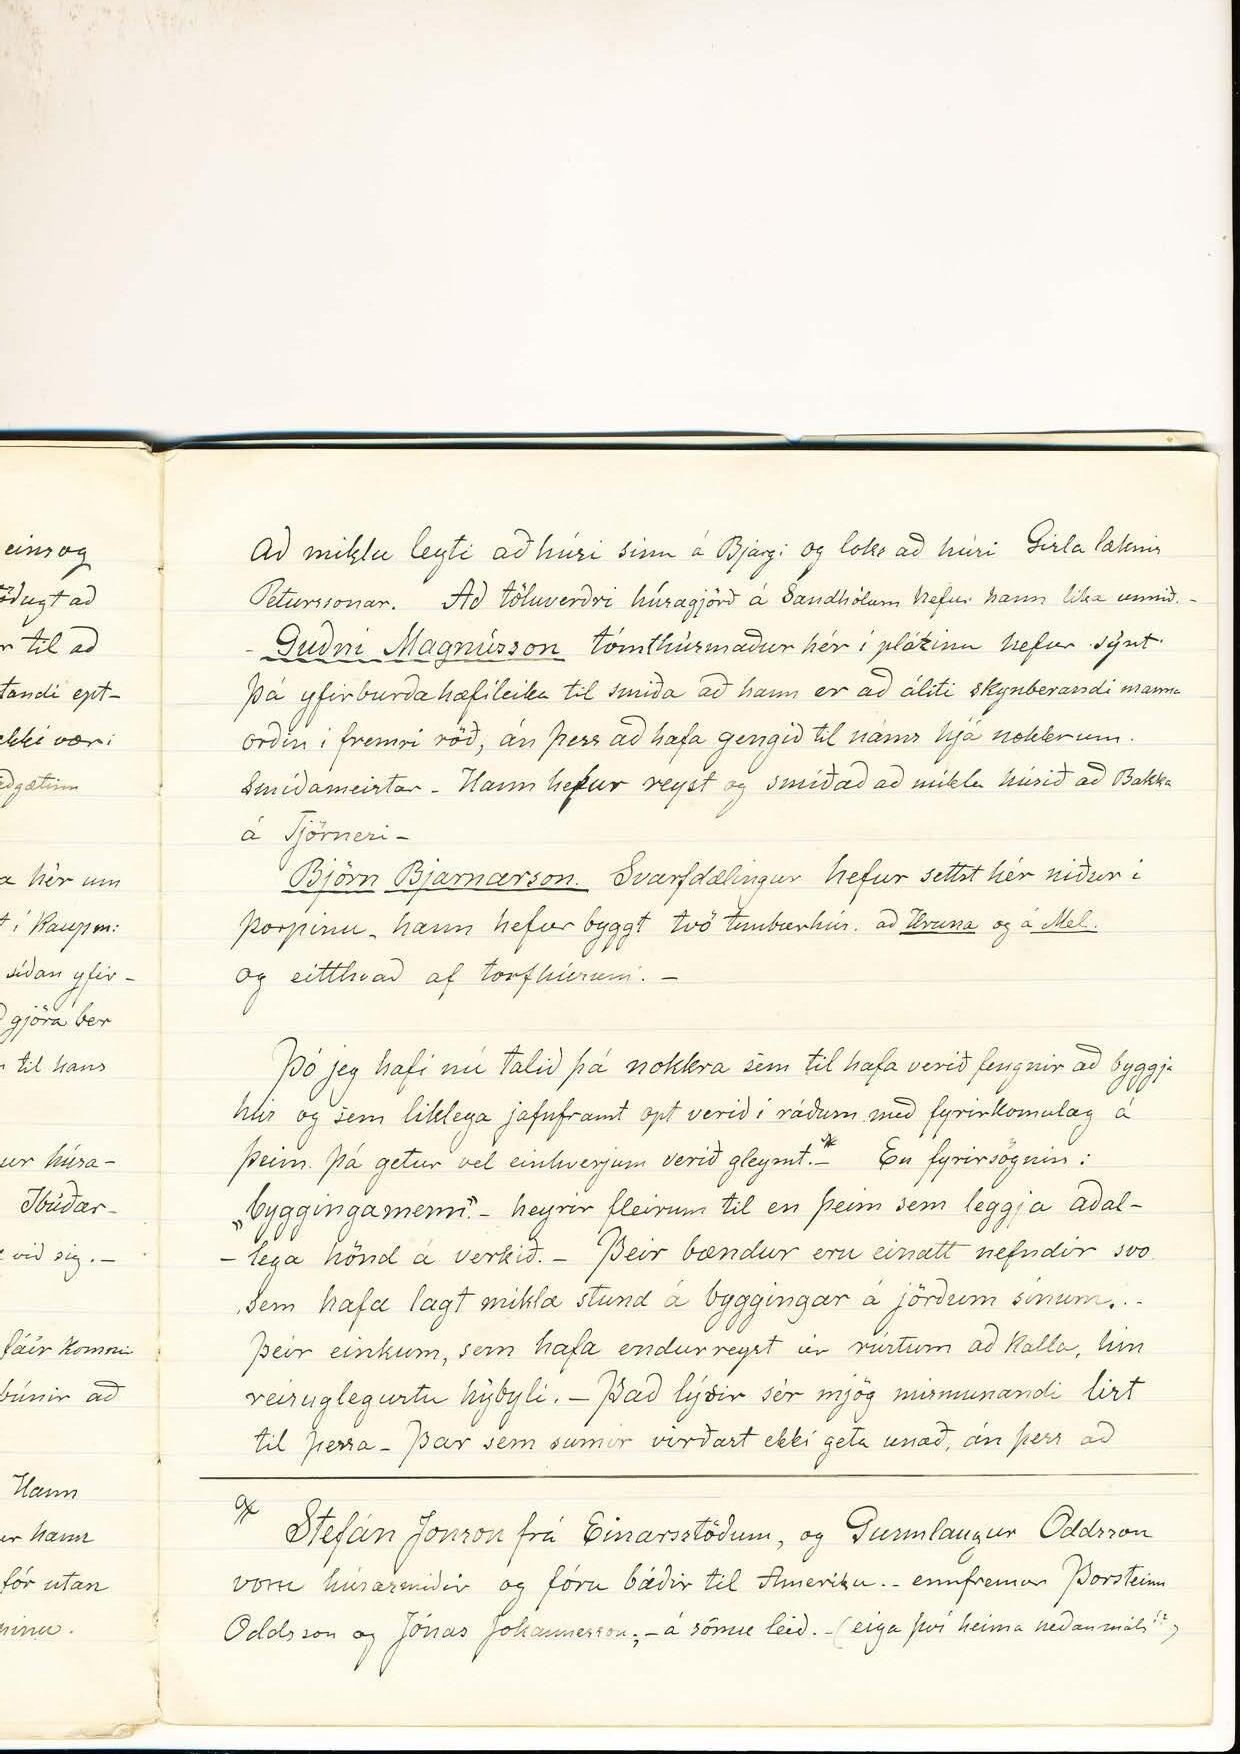 eins og
öðugt að
r til að
tandi ept-
ekki væri
eðgætinn
a hér um
t í Kaupm:
síðan yfir-
ð gjöra ber
n til hans
ur húsa-
Íbúðar-
við sig. -
fáir komni
búnir að
Hann
er hann
fór utan
ninu.
að miklu leyti að húsi sínu á Bjargi og loks að húsi Gísla læknis
Péturssonar. Að töluverðri húsagjörð á Sandhólum hefur hann líka unnið. -
- Guðni Magnússon tómthúsmaður hér í plázinu hefur sýnt
þá yfirburða hæfileika til smíða að hann er að áliti skynberandi manna
orðin í fremri röð, án þess að hafa gengið til náms hjá nokkrum.
Smíðameistar - Hann hefur reyst og smíðað að miklu húsið að Bakka
á Tjörnesi -
Björn Bjarnarson. Svarfdælingur hefur settst hér niður í
þorpinu - hann hefur byggt tvö timburhús. að Hruna og á Mel.
og eitthvað af torfhúsum. -
Þó jeg hafi nú talið þá nokkra sem til hafa verið fengnir að byggja
hús og sem líklega jafnframt opt verið í ráðum með fyrirkomulag á
þeim. þá getur vel einhverjum verið gleymt. - En fyrirsögnin:
„byggingamenn". - heyrir fleirum til en þeim sem leggja aðal-
- lega hönd á verkið. - Þeir bændur eru einatt nefndir svo
sem hafa lagt mikla stund á byggingar á jörðum sínum. -
þeir einkum, sem hafa endurreyst úr rústum að kalla, hin
reisuglegustu hýbýli. - Það lýsir sér mjög mismunandi list
til þessa - Þar sem sumir virðast ekki geta unað, án þess að
Stefán Jonson frá Einarsstöðum, og Gunnlaugur Oddsson
voru húsasmiðir og fóru báðir til Ameriku. - ennfremur Þorsteinn
Oddsson og Jónas Jóhannesson; - á sömu leið. - (eiga því heima neðanmáls!?)